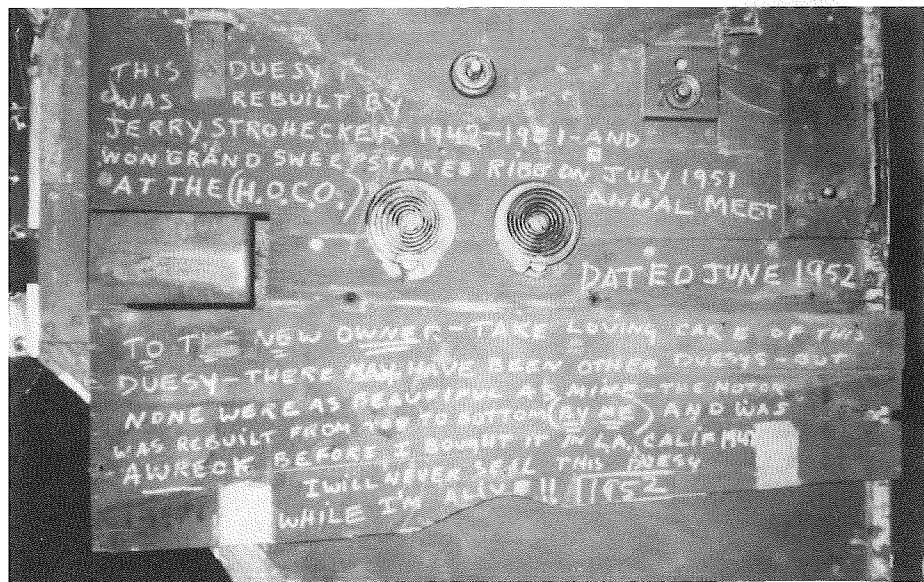 THIS DUESY
WAS REBUILT BY
JERRY STROHECKER 1947-1951-AND
WON GRAND SWEEPSTAKES RIBBON JULY 1951
AT THE (H.O.C.O.) ANUAL MEET
DATED JUNE 1952
TO THE NEW OWNER-TAKE LOVING CARE OF THIS
DUESY-THERE MAY HAVE BEEN OTHER DUESYS-BUT
NONE WERE AS BEAUTIFUL AS MINE-THE MOTOR
WAS REBUILT FROM TOP TO BOTTOM (BY ME) AND WAS
A WRECK BEFORE I BOUGHT IT IN L.A, CALIF 1947
I WILL NEVER SELL THIS DUESY
WHILE I'M ALIVE!! 1952